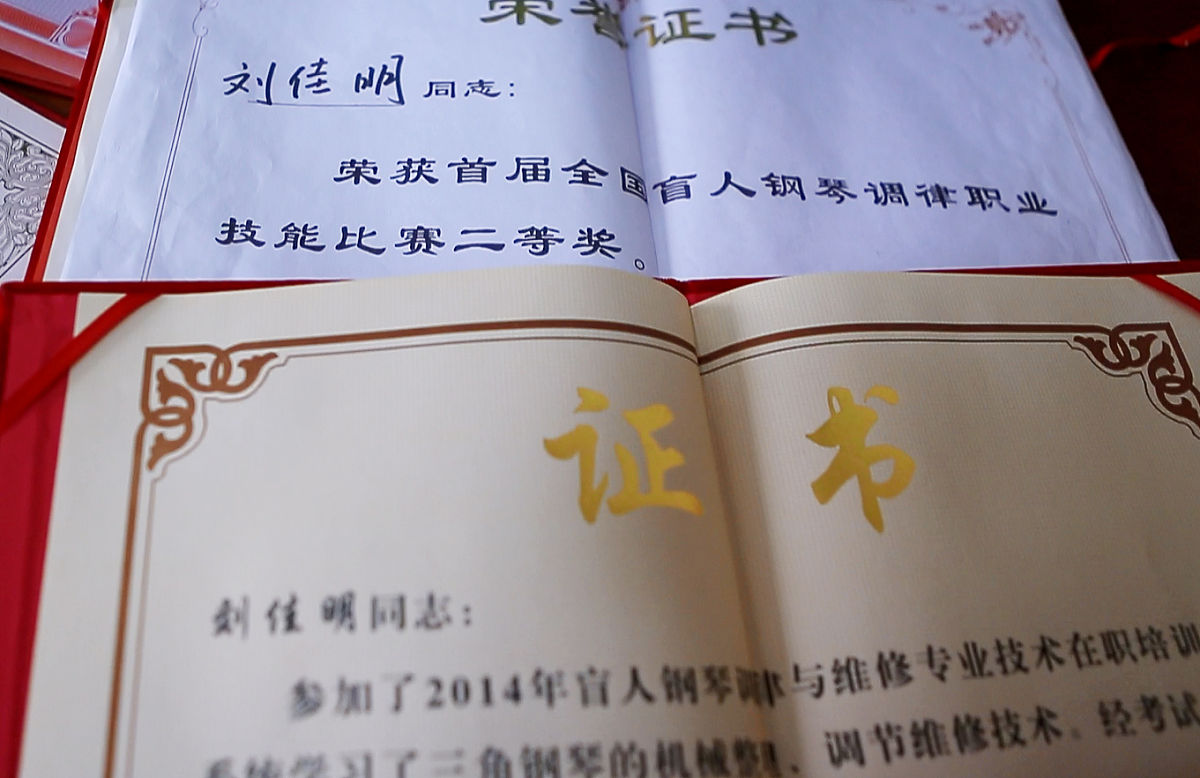 荣誉证书
刘佳明同志：
荣获首届全国盲人钢琴调律职业
技能比赛二等奖。
证书
刘佳明同志：
参加了2014年盲人钢琴调律与维修专业技术在职培训
系统学习了三角钢琴的机械整、调节维修技术。经考试